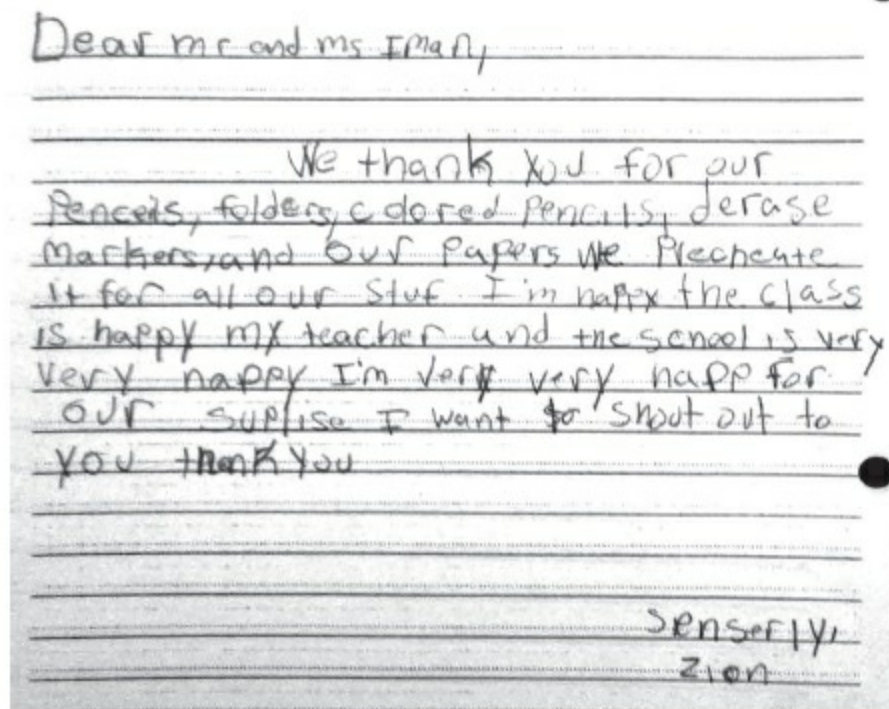 Dear mr and ms Iman,
We thank you for our
Pencels, folders, colored Pencils, derase
Markers, and our Papers We Precheate
it for all our Stuf I'm happy the class
is happy my teacher and the school is very
very happy I'm very very happ for
our suplise I want to shout out to
you thank you
senserly,
zion